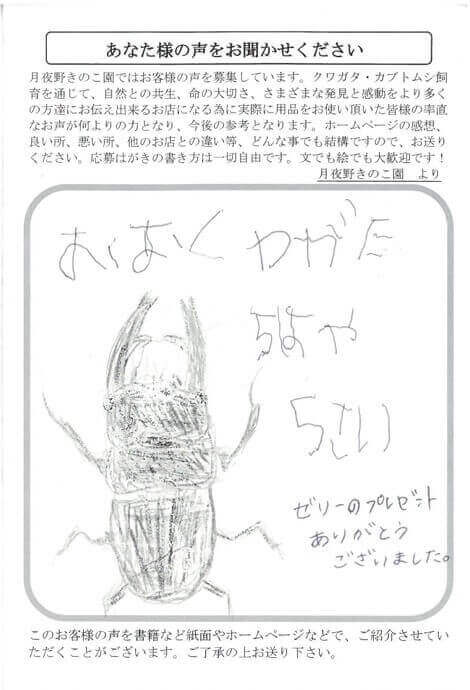 あなた様の声をお聞かせください
月夜野きのこ園ではお客様の声を募集しています。クワガタ・カブトムシ飼
育を通じて、自然との共生、命の大切さ、さまざまな発見と感動をより多く
の方達にお伝え出来るお店になる為に実際に用品をお使い頂いた皆様の率直
なお声が何よりの力となり、今後の参考となります。ホームページの感想、
良い所、悪い所、他のお店との違い等、どんな事でも結構ですので、お送り
ください。応募はがきの書き方は一切自由です。文でも絵でも大歓迎です！
月夜野きのこ園　より
わがた
ゼリーのプレゼント
ありがとう
ございました。
このお客様の声を書籍など紙面やホームページなどで、ご紹介させてい
ただくことがございます。ご了承の上お送り下さい。